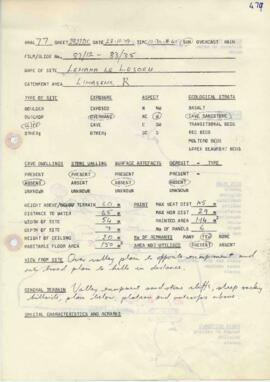 479
ARAL 77 SHEET DATE TIME SUN OVERCAST RAIN
FILM/SLIDE No. 83/12 - 83/35
NAME OF SITE
CATCHMENT AREA R
TYPE OF SITE EXPOSURE ASPECT GEOLOGICAL STRATA
BOULDER EXPOSED N NW BASALT
OUTCROP OVERHANG NE W CAVE SANDSTONE
CLIFF CAVE E SW TRANSITIONAL BEDS
OTHER: OTHER: SE S RED BEDS
MOLTENO BEDS
UPPER BEAUFORT BEDS
CAVE DWELLINGS STONE WALLING SURFACE ARTEFACTS DEPOSIT - TYPE.
PRESENT PRESENT PRESENT PRESENT
ABSENT ABSENT ABSENT ABSENT
UNKNOWN UNKNOWN UNKNOWN UNKNOWN
HEIGHT ABOVE/BELOW TERRAIN 60 m PAINT MAX HEAT DIST
DISTANCE TO WATER 65 m MAX HOR DIST 29 m
WIDTH OF SITE 54 m PAINTED AREA
DEPTH OF SITE 7 m No OF PANELS 6
HEIGHT OF CEILING 20 m No OF REMNANTS MANY
HABITABLE FLOOR AREA 150 m² AREA NOT UTILISED PRESENT ABSENT
VIEW FROM SITE Over valley plain to opposite escarpment and
over broad plain to hills in distance.
GENERAL TERRAIN Valley, escarpment sandstone cliffs, steep rocky
hillside, plain below, plateau and outcrops above.
SPECIAL CHARACTERISTICS AND REMARKS